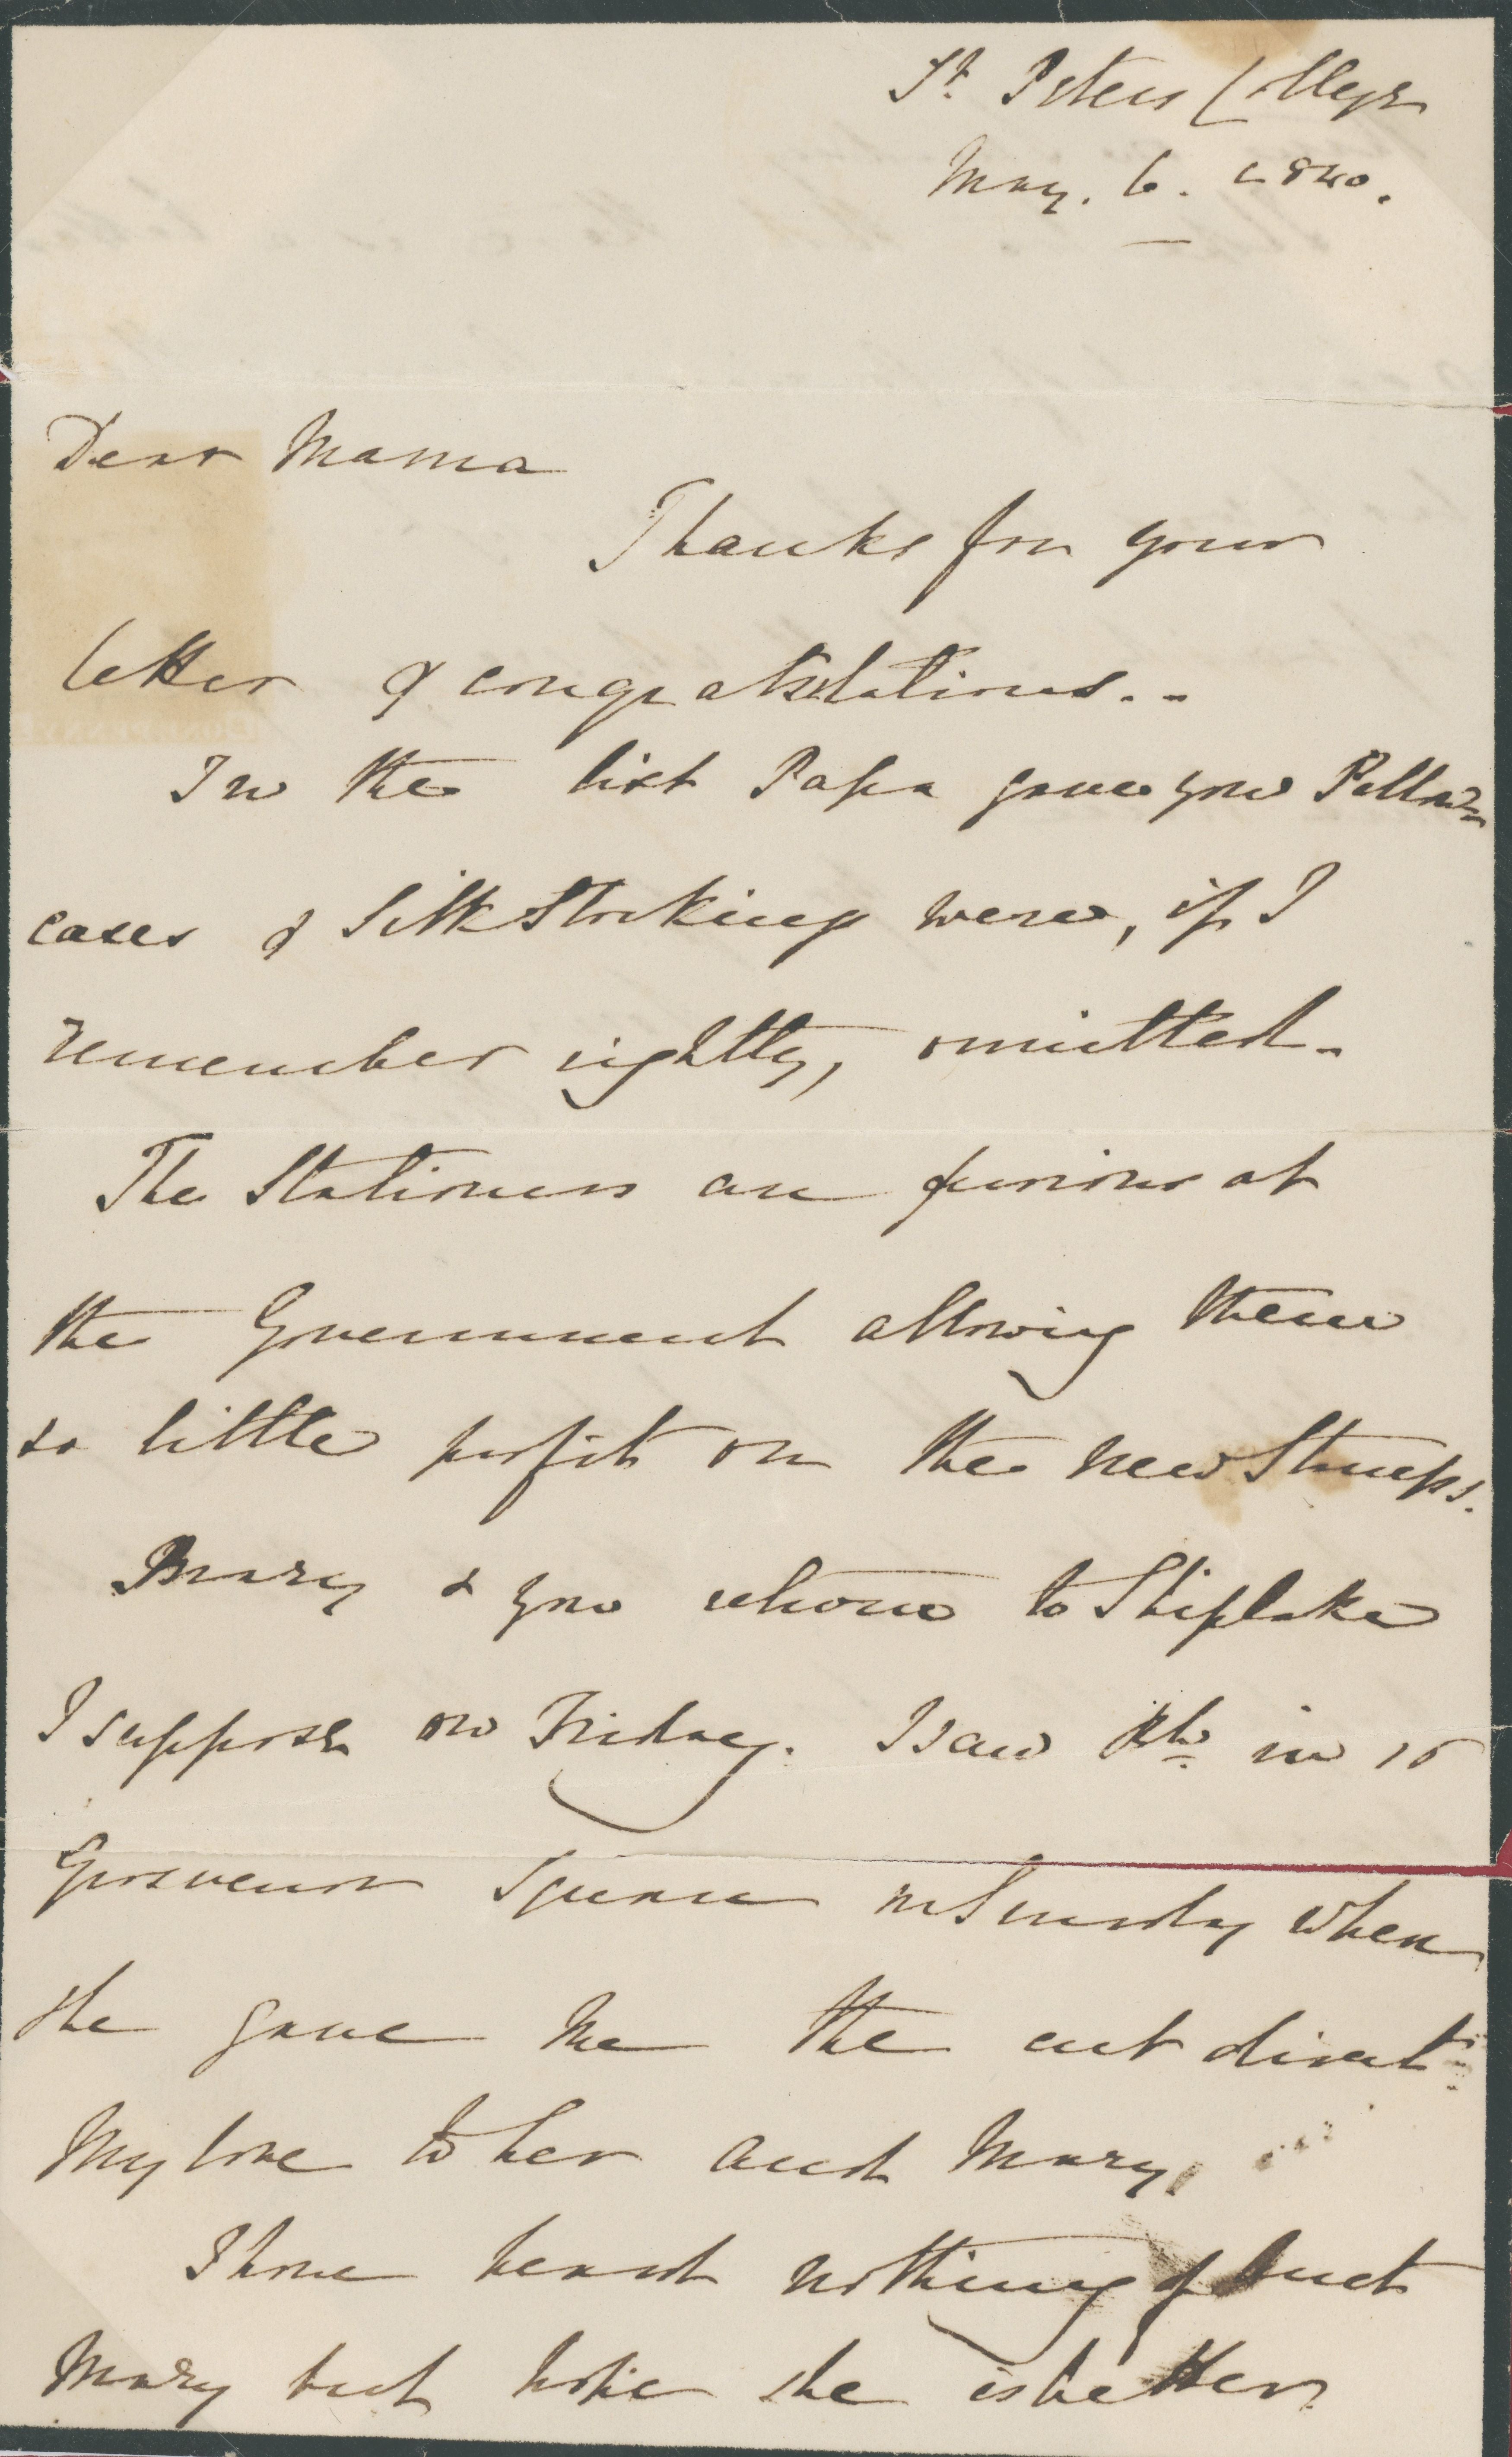 St Peters College
May. 6. 1840.
Dear Mama
Thanks for your
letter of congratulations..
In the list Papa gave you Pillow
cases & Silk Stockings were, if I
remember rightly, omitted.
The Stationers are furious at
the Government allowing them
so little profit on the new Stamps.
Mary & you return to Shiplake
I suppose on Friday. I saw in 16
Grosvenor Square on Sunday when
she gave me the cut direct
My love to her and Mary.
I have heard nothing of Aunt
Mary but hope she is better